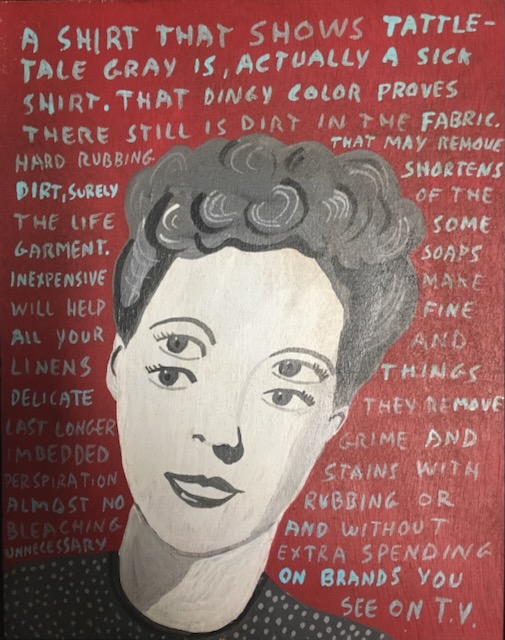 A SHIRT THAT SHOWS TATTLE-
TALE GRAY IS, ACTUALLY A SICK
SHIRT. THAT DINGY COLOR PROVES
THERE STILL IS DIRT IN THE FABRIC.
HARD RUBBING THAT MAY REMOVE
DIRT, SURELY SHORTENS
THE LIFE OF THE
GARMENT. SOME
INEXPENSIVE SOAPS
WILL HELP MAKE
ALL YOUR FINE
LINENS AND
DELICATE THINGS
LAST LONGER THEY REMOVE
IMBEDDED GRIME AND
PERSPIRATION STAINS WITH
ALMOST NO RUBBING OR
BLEACHING AND WITHOUT
UNNECESSARY EXTRA SPENDING
ON BRANDS YOU
SEE ON T.V.